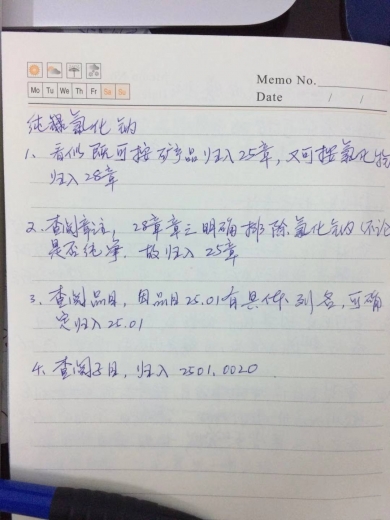 Memo No.
Mo Tu We Th Fr Sa Su
Date / /
纯氯化钠
1、看似既可按矿产品归入25章，又可按氯化物
归入28章
2、查阅章注，28章章三明确排除氯化钠（不论
是否纯净，故归入25章
3、查阅品目，因品目25.01有具体列名，可确
定归入25.01
4、查阅子目，归入2501.0020